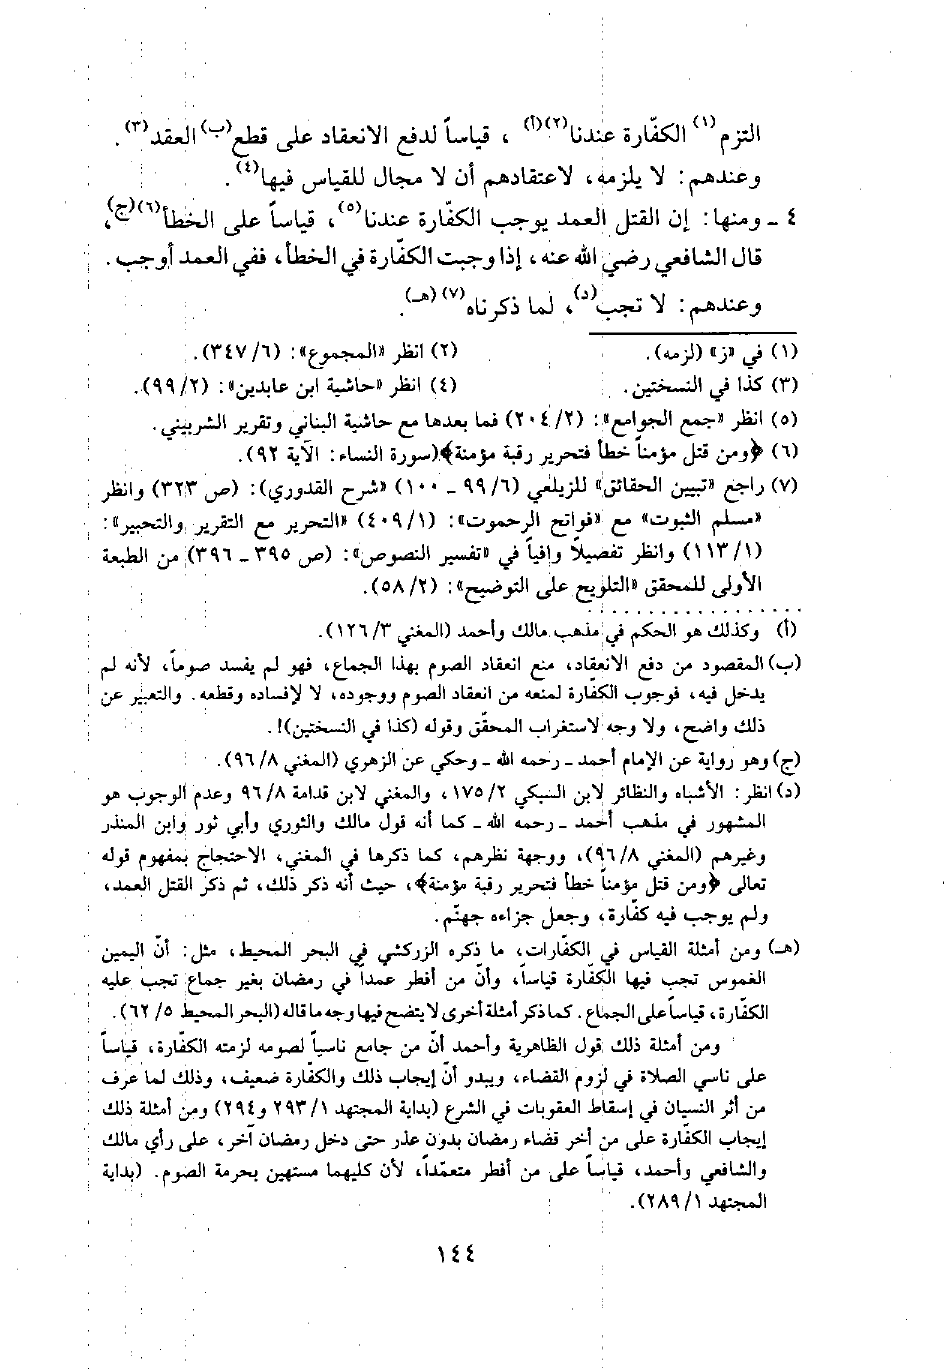 التزم(١) الكفّارة عندنا(٢)(أ) ، قياساً لدفع الانعقاد على قطع(ب) العقد(٣).
وعندهم: لا يلزمه، لاعتقادهم أن لا مجال للقياس فيها(٤).
٤ ـ ومنها: إن القتل العمد يوجب الكفّارة عندنا(٥)، قياساً على الخطأ(٦)(ج)،
قال الشافعي رضي الله عنه، إذا وجبت الكفّارة في الخطأ، ففي العمد أوجب.
وعندهم: لا تجب(د)، لما ذكرناه(٧)(هـ).
(١) في «ز» (لزمه). (٢) انظر «المجموع»: (٦/ ٣٤٧).
(٣) كذا في النسختين. (٤) انظر «حاشية ابن عابدين»: (٢/ ٩٩).
(٥) انظر «جمع الجوامع»: (٢/ ٢٠٤) فما بعدها مع حاشية البناني وتقرير الشربيني.
(٦) ﴿ومن قتل مؤمناً خطأ فتحرير رقبة مؤمنة﴾(سورة النساء: الآية ٩٢).
(٧) راجع «تبيين الحقائق» للزيلعي (٦/ ٩٩ ـ ١٠٠) «شرح القدوري): (ص ٣٢٣) وانظر
«مسلم الثبوت» مع «فواتح الرحموت»: (١/ ٤٠٩) «التحرير مع التقرير والتحبير»:
(١/ ١١٣) وانظر تفصيلاً وافياً في «تفسير النصوص»: (ص ٣٩٥ ـ ٣٩٦) من الطبعة
الأولى للمحقق «التلويح على التوضيح»: (٢/ ٥٨).
(أ) وكذلك هو الحكم في مذهب مالك وأحمد (المغني ٣/ ١٢٦).
(ب) المقصود من دفع الانعقاد، منع انعقاد الصوم بهذا الجماع، فهو لم يفسد صوماً، لأنه لم
يدخل فيه، فوجوب الكفّارة لمنعه من انعقاد الصوم ووجوده، لا لإفساده وقطعه. والتعبير عن
ذلك واضح، ولا وجه لاستغراب المحقّق وقوله (كذا في النسختين)!.
(ج) وهو رواية عن الإمام أحمد ـ رحمه الله ـ وحكي عن الزهري (المغني ٨/ ٩٦).
(د) انظر: الأشباه والنظائر لابن السبكي ٢/ ١٧٥، والمغني لابن قدامة ٨/ ٩٦ وعدم الوجوب هو
المشهور في مذهب أحمد ـ رحمه الله ـ كما أنه قول مالك والثوري وأبي ثور وابن المنذر
وغيرهم (المغني ٨/ ٩٦)، ووجهة نظرهم، كما ذكرها في المغني، الاحتجاج بمفهوم قوله
تعالى ﴿ومن قتل مؤمناً خطأ فتحرير رقبة مؤمنة﴾، حيث أنه ذكر ذلك، ثم ذكر القتل العمد،
ولم يوجب فيه كفّارة، وجعل جزاءه جهنّم.
(هـ) ومن أمثلة القياس في الكفّارات، ما ذكره الزركشي في البحر المحيط، مثل: أنّ اليمين
الغموس تجب فيها الكفّارة قياساً، وأنّ من أفطر عمداً في رمضان بغير جماع تجب عليه
الكفّارة، قياساً على الجماع. كما ذكر أمثلة أخرى لا يتضح فيها وجه ما قاله (البحر المحيط ٥/ ٦٢).
ومن أمثلة ذلك قول الظاهرية وأحمد أنّ من جامع ناسياً لصومه لزمته الكفّارة، قياساً
على ناسي الصلاة في لزوم القضاء، ويبدو أنّ إيجاب ذلك والكفّارة ضعيف، وذلك لما عرف
من أثر النسيان في إسقاط العقوبات في الشرع (بداية المجتهد ١/ ٢٩٣ و٢٩٤) ومن أمثلة ذلك
إيجاب الكفّارة على من أخر قضاء رمضان بدون عذر حتى دخل رمضان آخر، على رأي مالك
والشافعي وأحمد، قياساً على من أفطر متعمّداً، لأن كليهما مستهين بحرمة الصوم. (بداية
المجتهد ١/ ٢٨٩).
١٤٤